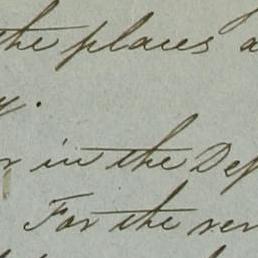 the places a
y.
r in the Dep
For the ren